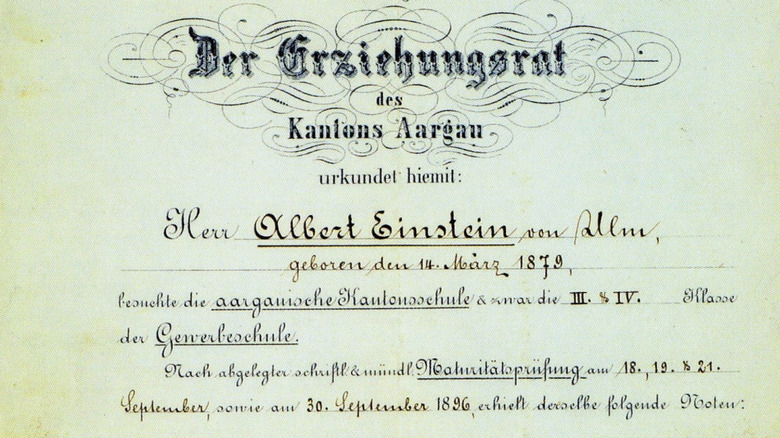 Der Erziehungsrat
des
Kantons Aargau
urkundet hiemit:
Herr Albert Einstein von Ulm,
geboren den 14. März 1879,
besuchte die aargauische Kantonsschule & zwar die III. & IV. Klasse
der Gewerbeschule.
Nach abgelegter schriftl. & mündl. Maturitätsprüfung am 18., 19. & 21.
September, sowie am 30. September 1896, erhielt derselbe folgende Noten: